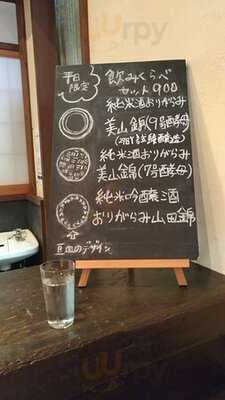 平日
限定
飲みくらべ
セット900
純米酒おりがらみ
美山錦(9号酵母)
純米酒おりがらみ
美山錦(7号酵母)
純米吟醸酒
おりがらみ山田錦
豆皿のデザイン